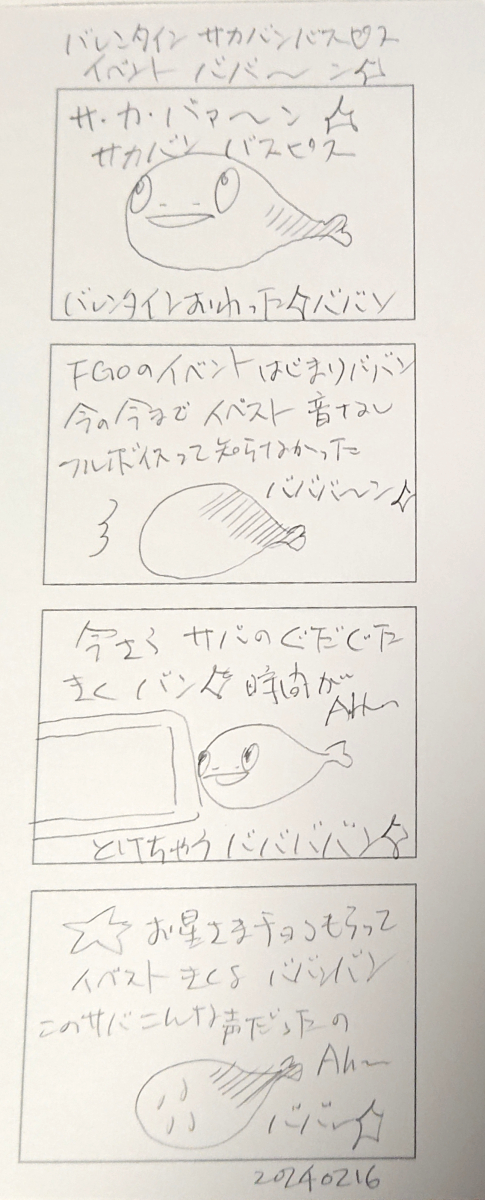 バレンタイン サカバンバスピス
イベント ババ〜ン☆
サ・カ・バァ〜ン☆
サカバン バスピス
バレンタインおわった☆ババン
FGOのイベントはじまりババン
今の今まで イベスト 音なし
フルボイスって知らなかった
バババ〜ン☆
今さら サバのぐだぐだ
きくバン☆ 時間が
Ah〜
とけちゃう ババババン☆
☆お星さまチョコもらって
イベスト きくよ ババンバン
このサバこんな声だったの
Ah〜
ババ〜ン☆
20240216